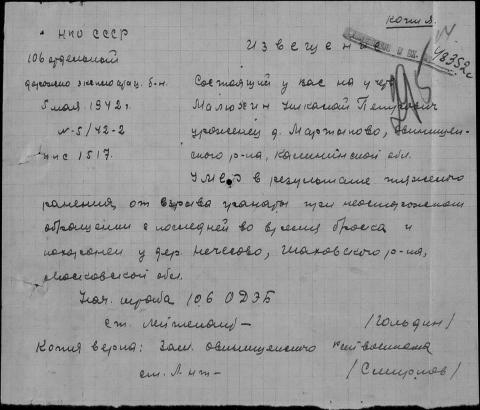 Копия.
НКО СССР
Извещение
106 отдельный
дорожно эксплоатац. б-н.
Состоящий у вас на учете
5 мая 1942 г.
Малюхин Николай Петрович
№ 5/42-2
уроженец д. Мартыново, Овинищен-
ппс 1517.
ского р-на, Калининской обл.
УМЕР в результате тяжелого
ранения от взрыва гранаты при неосторожном
обращении с последней во время броска и
похоронен у дер. Нечесово, Шаховского р-на,
Московской обл.
Нач. штаба 106 ОДЭБ
ст. лейтенант –
/Гольдин/
Копия верна: Зам. Овинищенского райвоенкома
ст. л-нт –
/Смирнов/